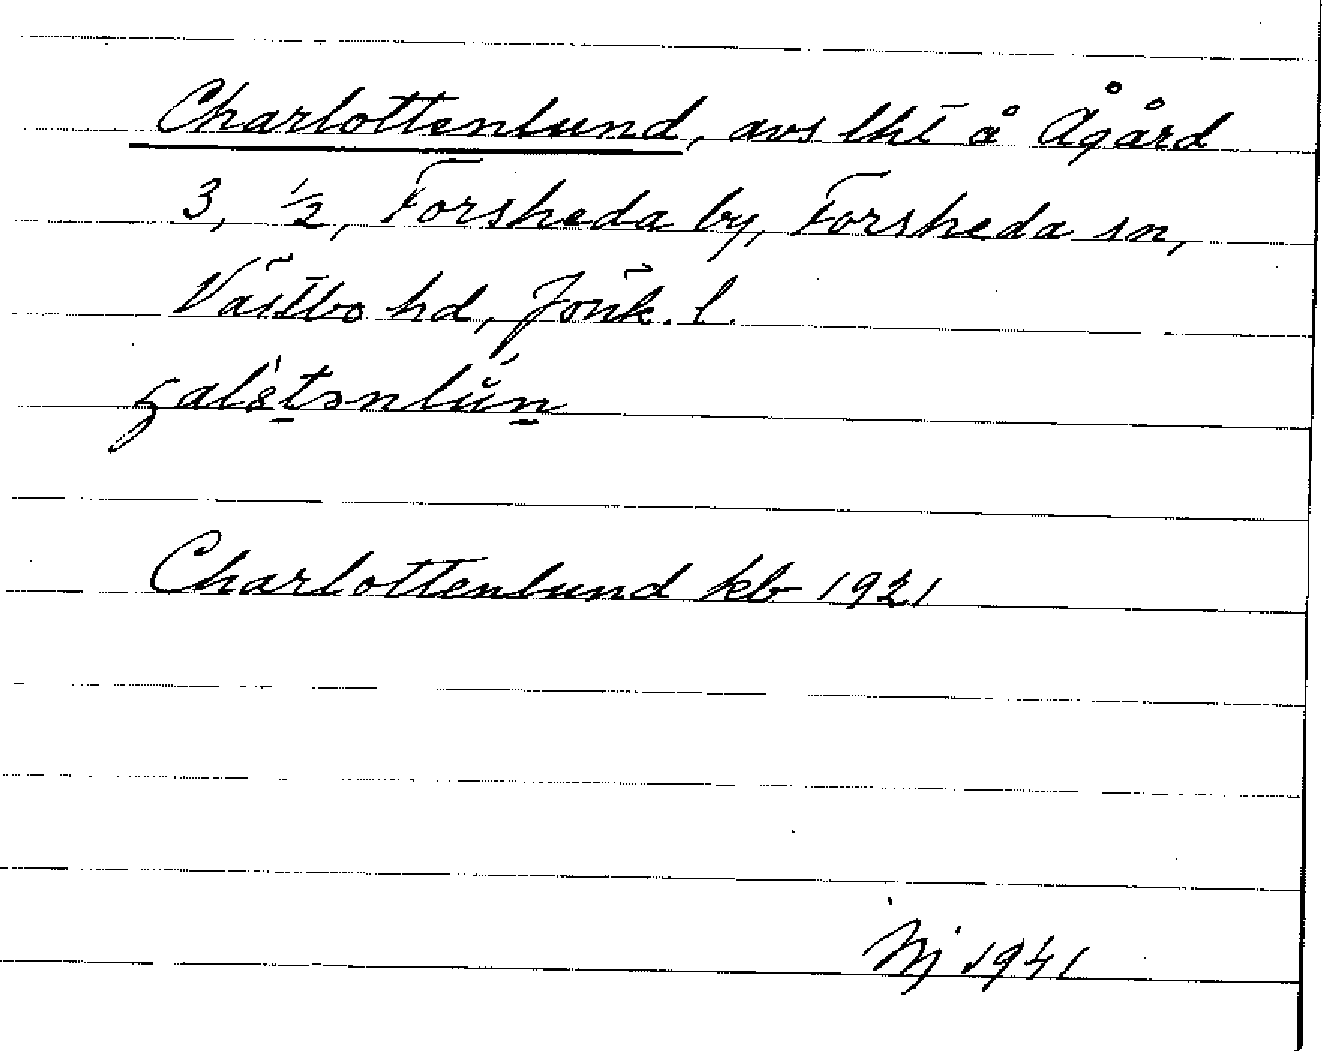 Charlottenlund, avs lht å Ågård
3, ½, Forsheda by, Forsheda sn,
Västbo hd, Jönk. l.
Charlottenlund kb 1921
1941